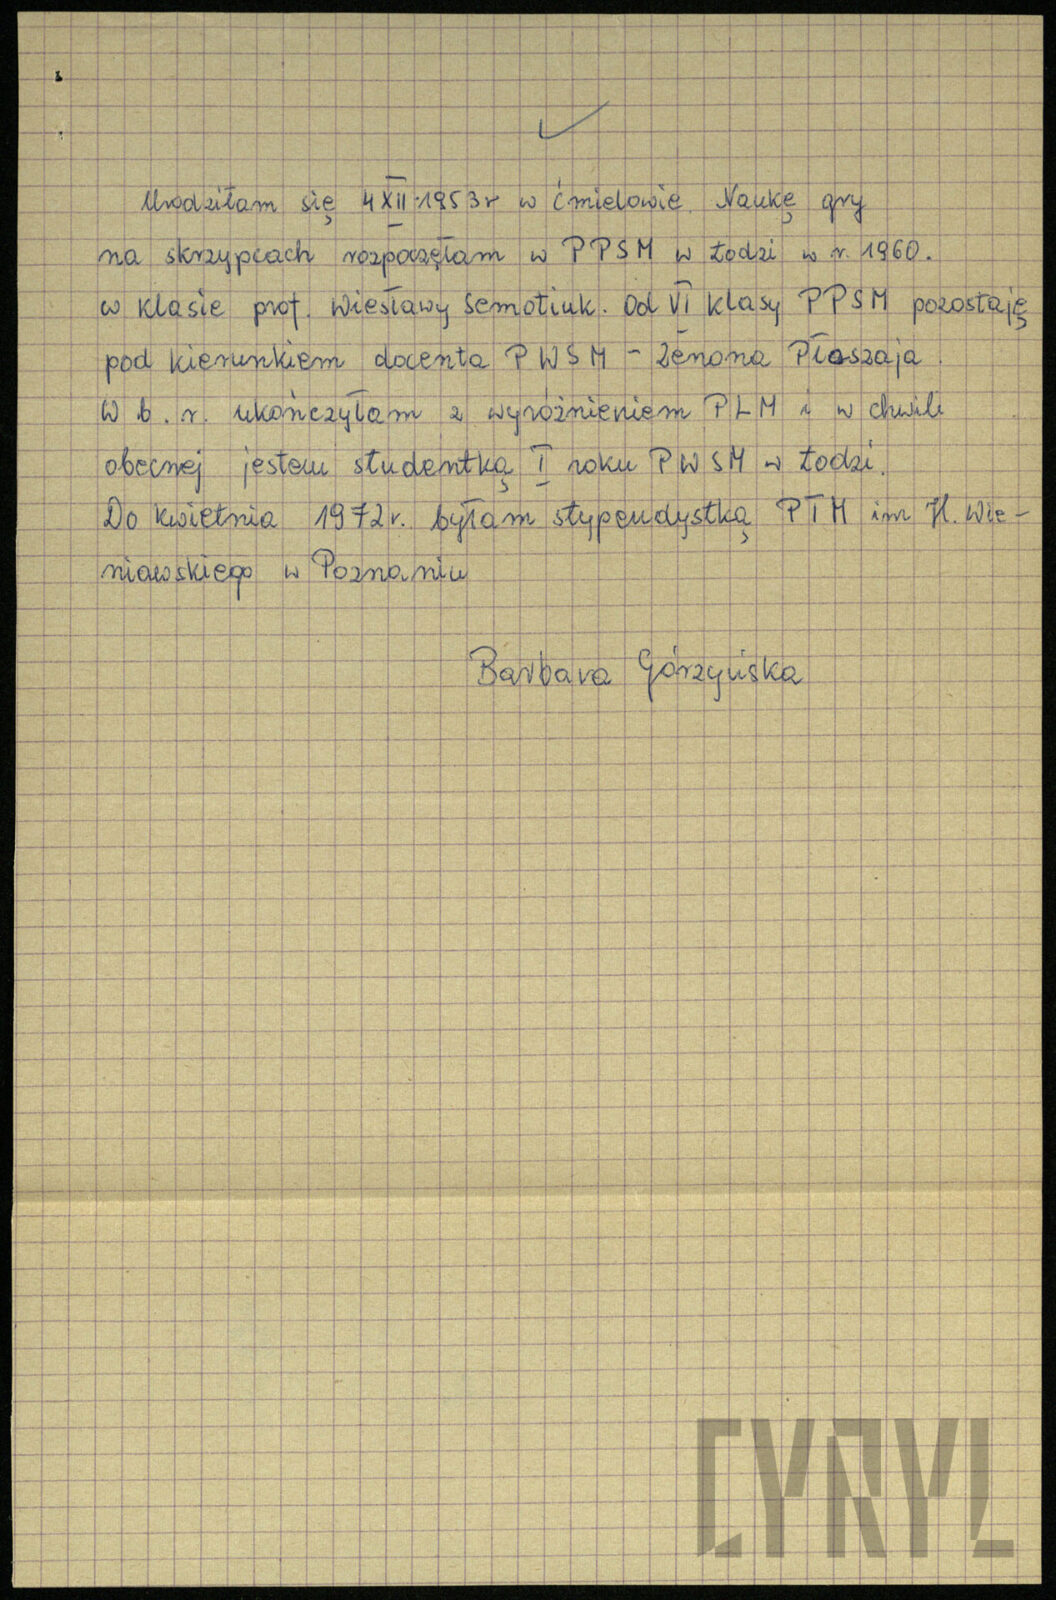 Urodziłam się 4 XII 1953 r w Ćmielowie. Naukę gry
na skrzypcach rozpoczęłam w PPSM w Łodzi w r. 1960.
w klasie prof. Wiesławy Semotiuk. Od VI klasy PPSM pozostaję
pod kierunkiem docenta PWSM – Zenona Płoszaja.
W b. r. ukończyłam z wyróżnieniem PLM i w chwili
obecnej jestem studentką I roku PWSM w Łodzi.
Do kwietnia 1972 r. byłam stypendystką PTM im H. Wie-
niawskiego w Poznaniu
Barbara Górzyńska
CYRYL